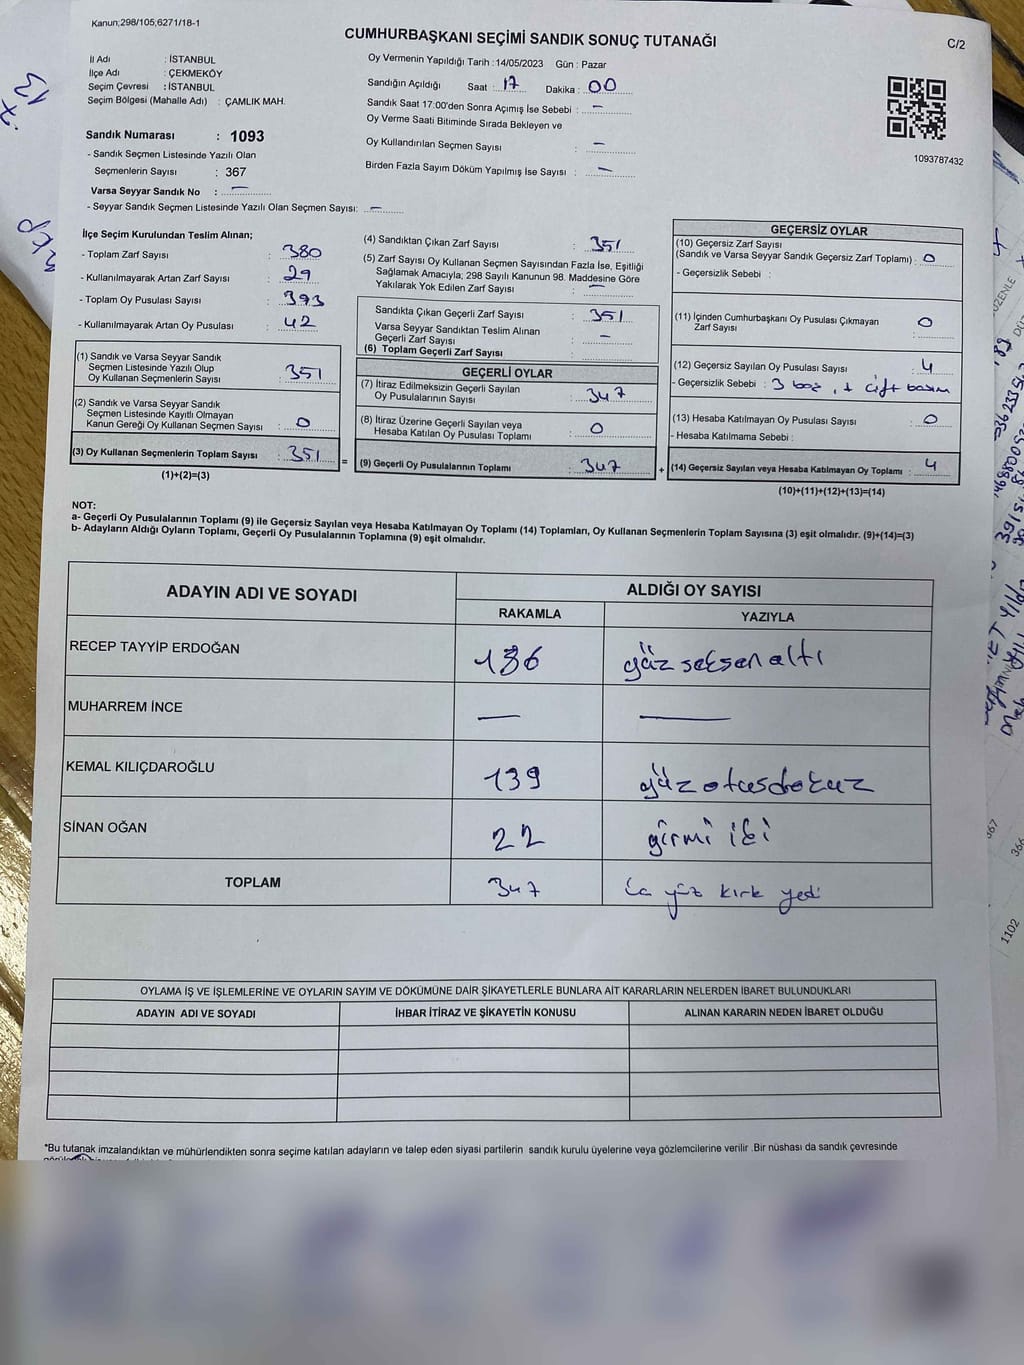 Kanun;298/105;6271/18-1
CUMHURBAŞKANI SEÇİMİ SANDIK SONUÇ TUTANAĞI
C/2
İl Adı : İSTANBUL
İlçe Adı : ÇEKMEKÖY
Seçim Çevresi : İSTANBUL
Seçim Bölgesi (Mahalle Adı) : ÇAMLIK MAH.
Oy Vermenin Yapıldığı Tarih :14/05/2023 Gün : Pazar
Sandığın Açıldığı Saat : 17 Dakika : 00
Sandık Saat 17:00'den Sonra Açımış İse Sebebi : —
Oy Verme Saati Bitiminde Sırada Bekleyen ve
Oy Kullandırılan Seçmen Sayısı : —
Birden Fazla Sayım Döküm Yapılmış İse Sayısı : —
1093787432
Sandık Numarası : 1093
- Sandık Seçmen Listesinde Yazılı Olan
Seçmenlerin Sayısı : 367
Varsa Seyyar Sandık No : —
- Seyyar Sandık Seçmen Listesinde Yazılı Olan Seçmen Sayısı: —
İlçe Seçim Kurulundan Teslim Alınan;
- Toplam Zarf Sayısı : 380
- Kullanılmayarak Artan Zarf Sayısı : 29
- Toplam Oy Pusulası Sayısı : 393
- Kullanılmayarak Artan Oy Pusulası : 42
(1) Sandık ve Varsa Seyyar Sandık
Seçmen Listesinde Yazılı Olup
Oy Kullanan Seçmenlerin Sayısı : 351
(2) Sandık ve Varsa Seyyar Sandık
Seçmen Listesinde Kayıtlı Olmayan
Kanun Gereği Oy Kullanan Seçmen Sayısı : 0
(3) Oy Kullanan Seçmenlerin Toplam Sayısı : 351 =
(1)+(2)=(3)
(4) Sandıktan Çıkan Zarf Sayısı : 351
(5) Zarf Sayısı Oy Kullanan Seçmen Sayısından Fazla İse, Eşitliği
Sağlamak Amacıyla, 298 Sayılı Kanunun 98. Maddesine Göre
Yakılarak Yok Edilen Zarf Sayısı : —
Sandıkta Çıkan Geçerli Zarf Sayısı : 351
Varsa Seyyar Sandıktan Teslim Alınan
Geçerli Zarf Sayısı : —
(6) Toplam Geçerli Zarf Sayısı :
GEÇERLİ OYLAR
(7) İtiraz Edilmeksizin Geçerli Sayılan
Oy Pusulalarının Sayısı : 347
(8) İtiraz Üzerine Geçerli Sayılan veya
Hesaba Katılan Oy Pusulası Toplamı : 0
(9) Geçerli Oy Pusulalarının Toplamı : 347 +
GEÇERSİZ OYLAR
(10) Geçersiz Zarf Sayısı
(Sandık ve Varsa Seyyar Sandık Geçersiz Zarf Toplamı) : 0
- Geçersizlik Sebebi :
(11) İçinden Cumhurbaşkanı Oy Pusulası Çıkmayan
Zarf Sayısı : 0
(12) Geçersiz Sayılan Oy Pusulası Sayısı : 4
- Geçersizlik Sebebi : 3 boş, 1 çift basım
(13) Hesaba Katılmayan Oy Pusulası Sayısı : 0
- Hesaba Katılmama Sebebi :
(14) Geçersiz Sayılan veya Hesaba Katılmayan Oy Toplamı : 4
(10)+(11)+(12)+(13)=(14)
NOT:
a- Geçerli Oy Pusulalarının Toplamı (9) ile Geçersiz Sayılan veya Hesaba Katılmayan Oy Toplamı (14) Toplamları, Oy Kullanan Seçmenlerin Toplam Sayısına (3) eşit olmalıdır. (9)+(14)=(3)
b- Adayların Aldığı Oyların Toplamı, Geçerli Oy Pusulalarının Toplamına (9) eşit olmalıdır.
ADAYIN ADI VE SOYADI
ALDIĞI OY SAYISI
RAKAMLA YAZIYLA
RECEP TAYYİP ERDOĞAN 186 yüz seksen altı
MUHARREM İNCE — —
KEMAL KILIÇDAROĞLU 139 yüz otuzdokuz
SİNAN OĞAN 22 yirmi iki
TOPLAM 347 üç yüz kırk yedi
OYLAMA İŞ VE İŞLEMLERİNE VE OYLARIN SAYIM VE DÖKÜMÜNE DAİR ŞİKAYETLERLE BUNLARA AİT KARARLARIN NELERDEN İBARET BULUNDUKLARI
ADAYIN ADI VE SOYADI İHBAR İTİRAZ VE ŞİKAYETİN KONUSU ALINAN KARARIN NEDEN İBARET OLDUĞU
*Bu tutanak imzalandıktan ve mühürlendikten sonra seçime katılan adayların ve talep eden siyasi partilerin sandık kurulu üyelerine veya gözlemcilerine verilir .Bir nüshası da sandık çevresinde
367
366
1102